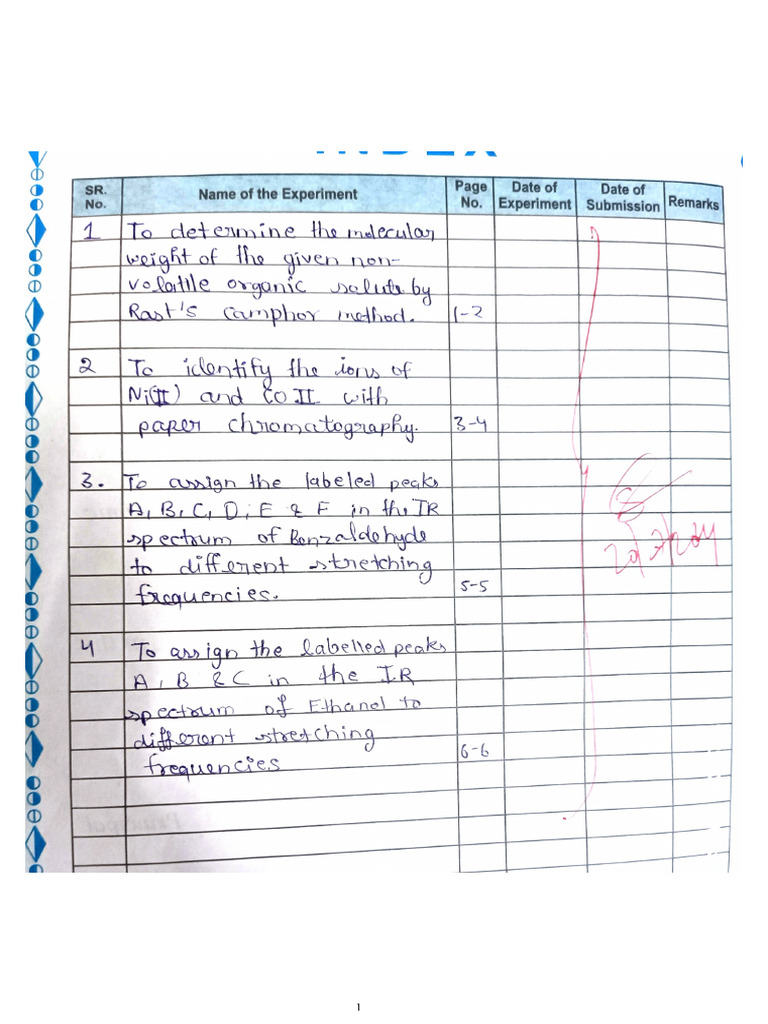 INDEX
SR. No. Name of the Experiment Page No. Date of Experiment Date of Submission Remarks
1 To determine the molecular
weight of the given non-
volatile organic solute by
Rast's camphor method. 1-2
2 To identify the ions of
Ni(II) and CO II with
paper chromatography. 3-4
3. To assign the labeled peaks
A, B, C, D, E & F in the IR
spectrum of Benzaldehyde
to different stretching
frequencies. 5-5
4 To assign the labelled peaks
A, B & C in the IR
spectrum of Ethanol to
different stretching
frequencies 6-6
1